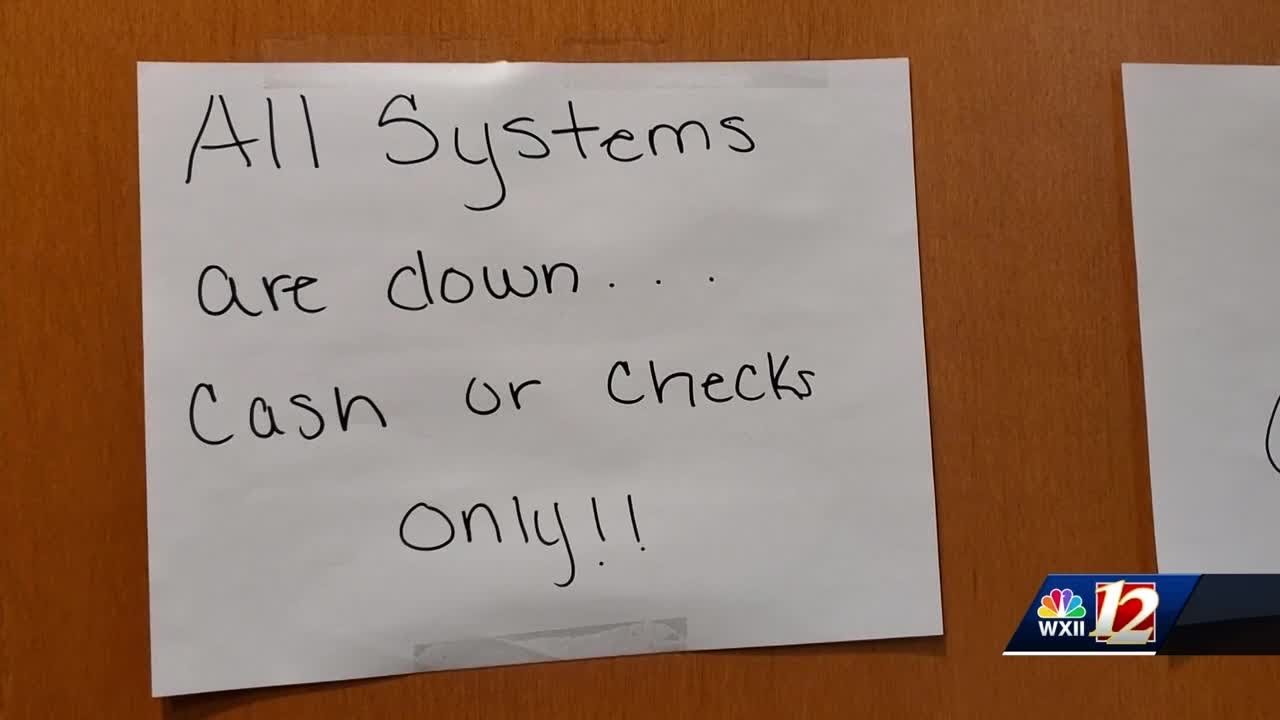 All Systems
are down...
Cash or Checks
only!!
WXII 12